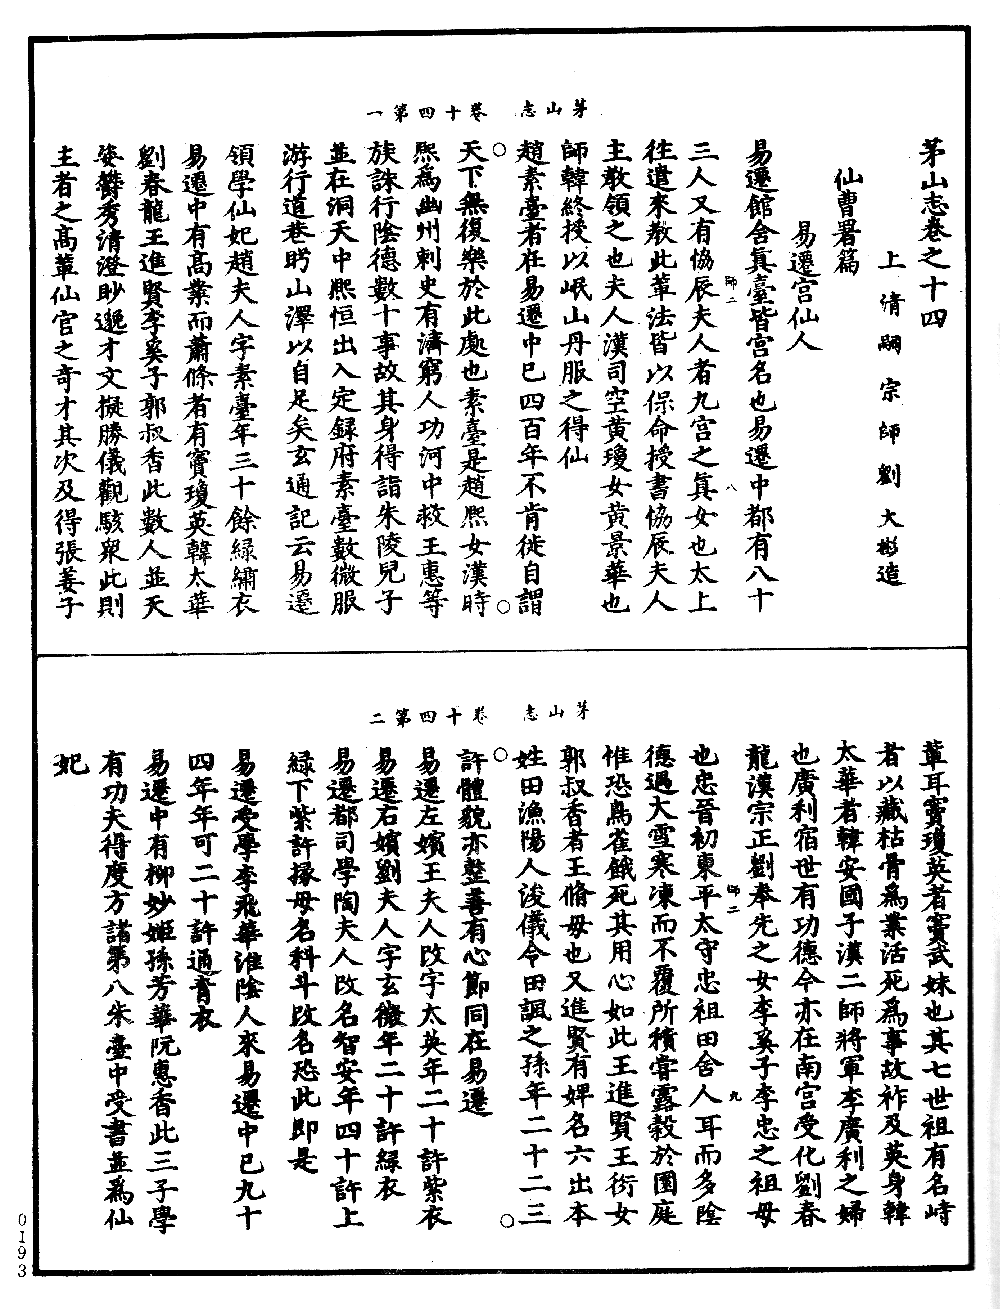 茅山志　卷十四第一
茅山志卷之十四
上清嗣宗師劉大彬造
仙曹署篇
易遷宮仙人
易遷館含真臺皆宮名也易遷中都有八十
三人又有協辰夫人者九宮之真女也太上
往遣來教此輩法皆以保命授書協辰夫人
主教領之也夫人漢司空黄瓊女黄景華也
師韓終授以岷山丹服之得仙
趙素臺者在易遷中已四百年不肯徙自謂
天下無復樂於此處也素臺是趙熙女漢時
熙為幽州刺史有濟窮人功河中救王惠等
族誅行陰德數十事故其身得詣朱陵兒子
並在洞天中熙恒出入定録府素臺數微服
游行道巷眄山澤以自足矣玄通記云易遷
領學仙妃趙夫人字素臺年三十餘緑繡衣
易遷中有高業而蕭條者有竇瓊英韓太華
劉春龍王進賢李奚子郭叔香此數人並天
姿欝秀清澄眇邈才文擬勝儀觀駭衆此則
主者之高輩仙官之奇才其次及得張姜子
師二
八
茅山志　卷十四第二
輩耳竇瓊英者竇武妹也其七世祖有名峙
者以藏枯骨為業活死為事故祚及英身韓
太華者韓安國子漢二師將軍李廣利之婦
也廣利宿世有功德今亦在南宮受化劉春
龍漢宗正劉奉先之女李奚子李忠之祖母
也忠晉初東平太守忠祖田舍人耳而多陰
德遇大雪寒凍而不覆所積嘗露穀於園庭
惟恐鳥雀餓死其用心如此王進賢王衍女
郭叔香者王脩母也又進賢有婢名六出本
姓田漁陽人浚儀令田諷之孫年二十二三
許體貌亦整善有心節同在易遷
易遷左嬪王夫人改字太英年二十許紫衣
易遷右嬪劉夫人字玄微年二十許緑衣
易遷都司學陶夫人改名智安年四十許上
緑下紫許掾母名科斗改名恐此即是
易遷受學李飛華淮陰人來易遷中已九十
四年年可二十許通青衣
易遷中有柳妙姬孫芳華阮惠香此三子學
有功夫得度方諸第八朱臺中受書並為仙
妃
師二
九
0193